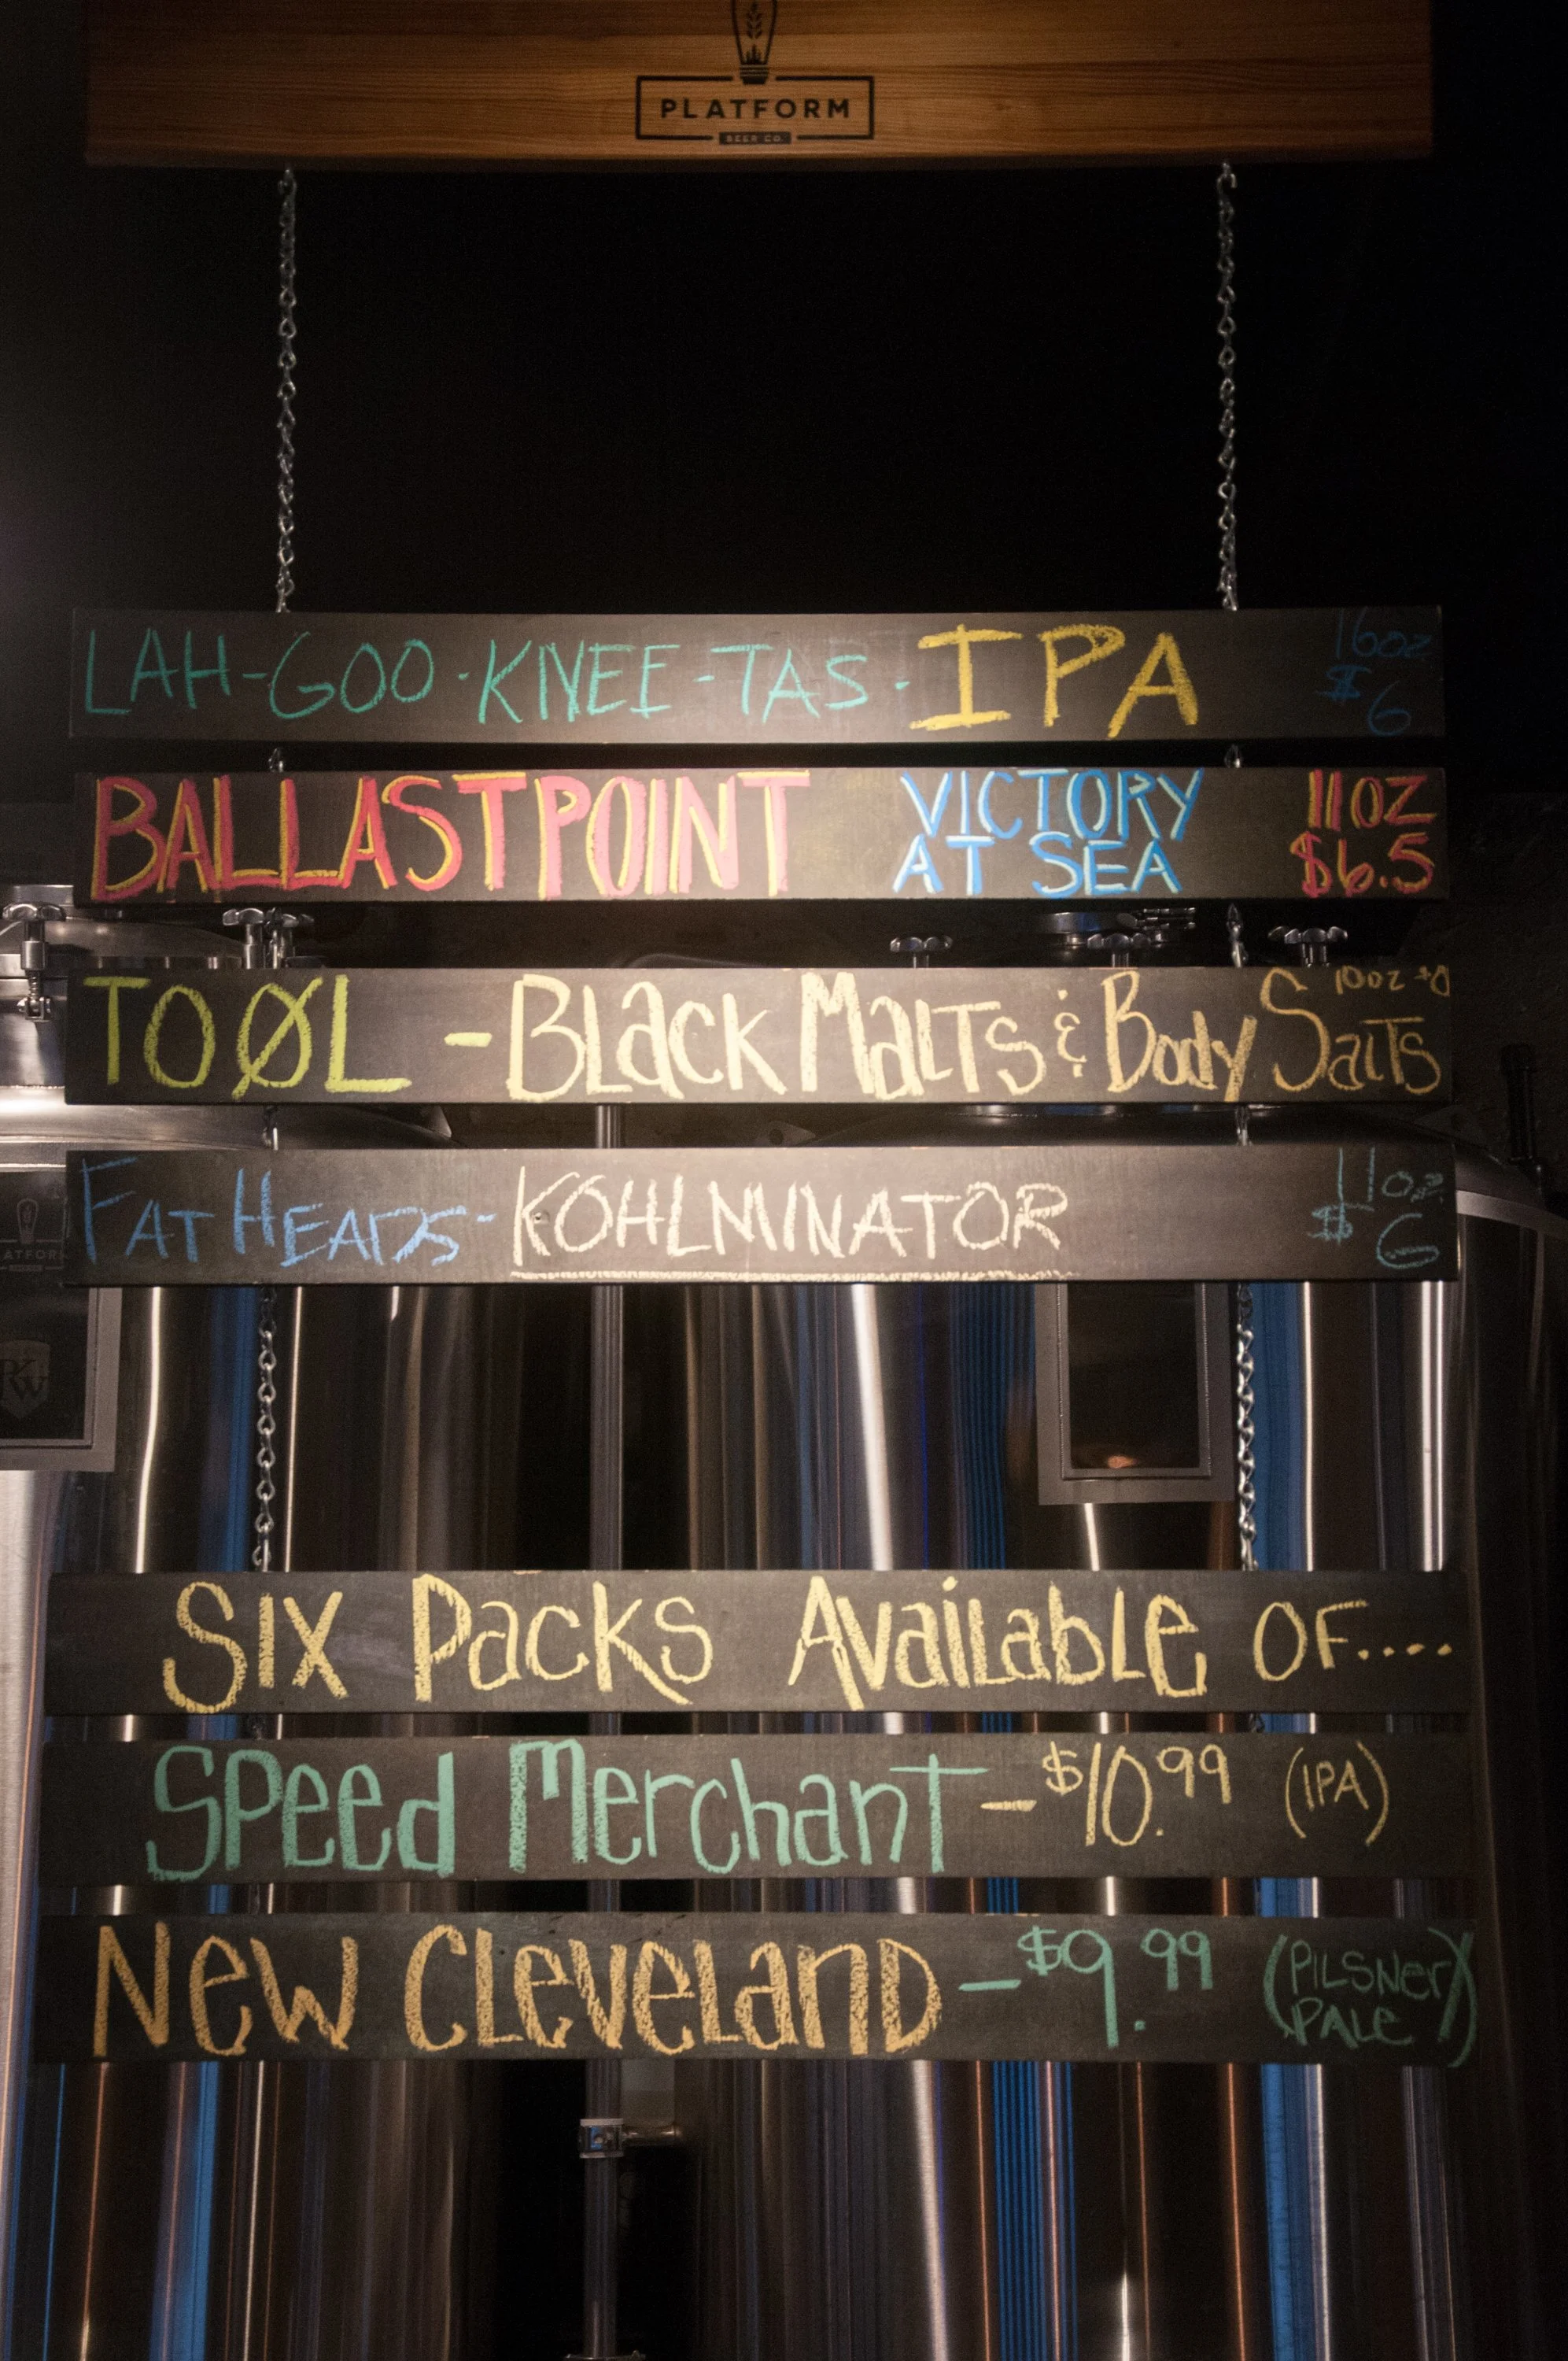 PLATFORM
BEER CO.
LAH-GOO-KNEE-TAS-IPA 16oz $6
BALLASTPOINT VICTORY AT SEA 11OZ $6.5
TOØL - BLacK MaLTs & Body SaLTs 10oz
FATHEADS - KOHLMINATOR 11oz $6
SIX PacKs AvaiLabLe OF....
SPeed MerchanT - $10.99 (IPA)
New CLeveLanD - $9.99 (PILSNer PALe)
ATFORM
RW